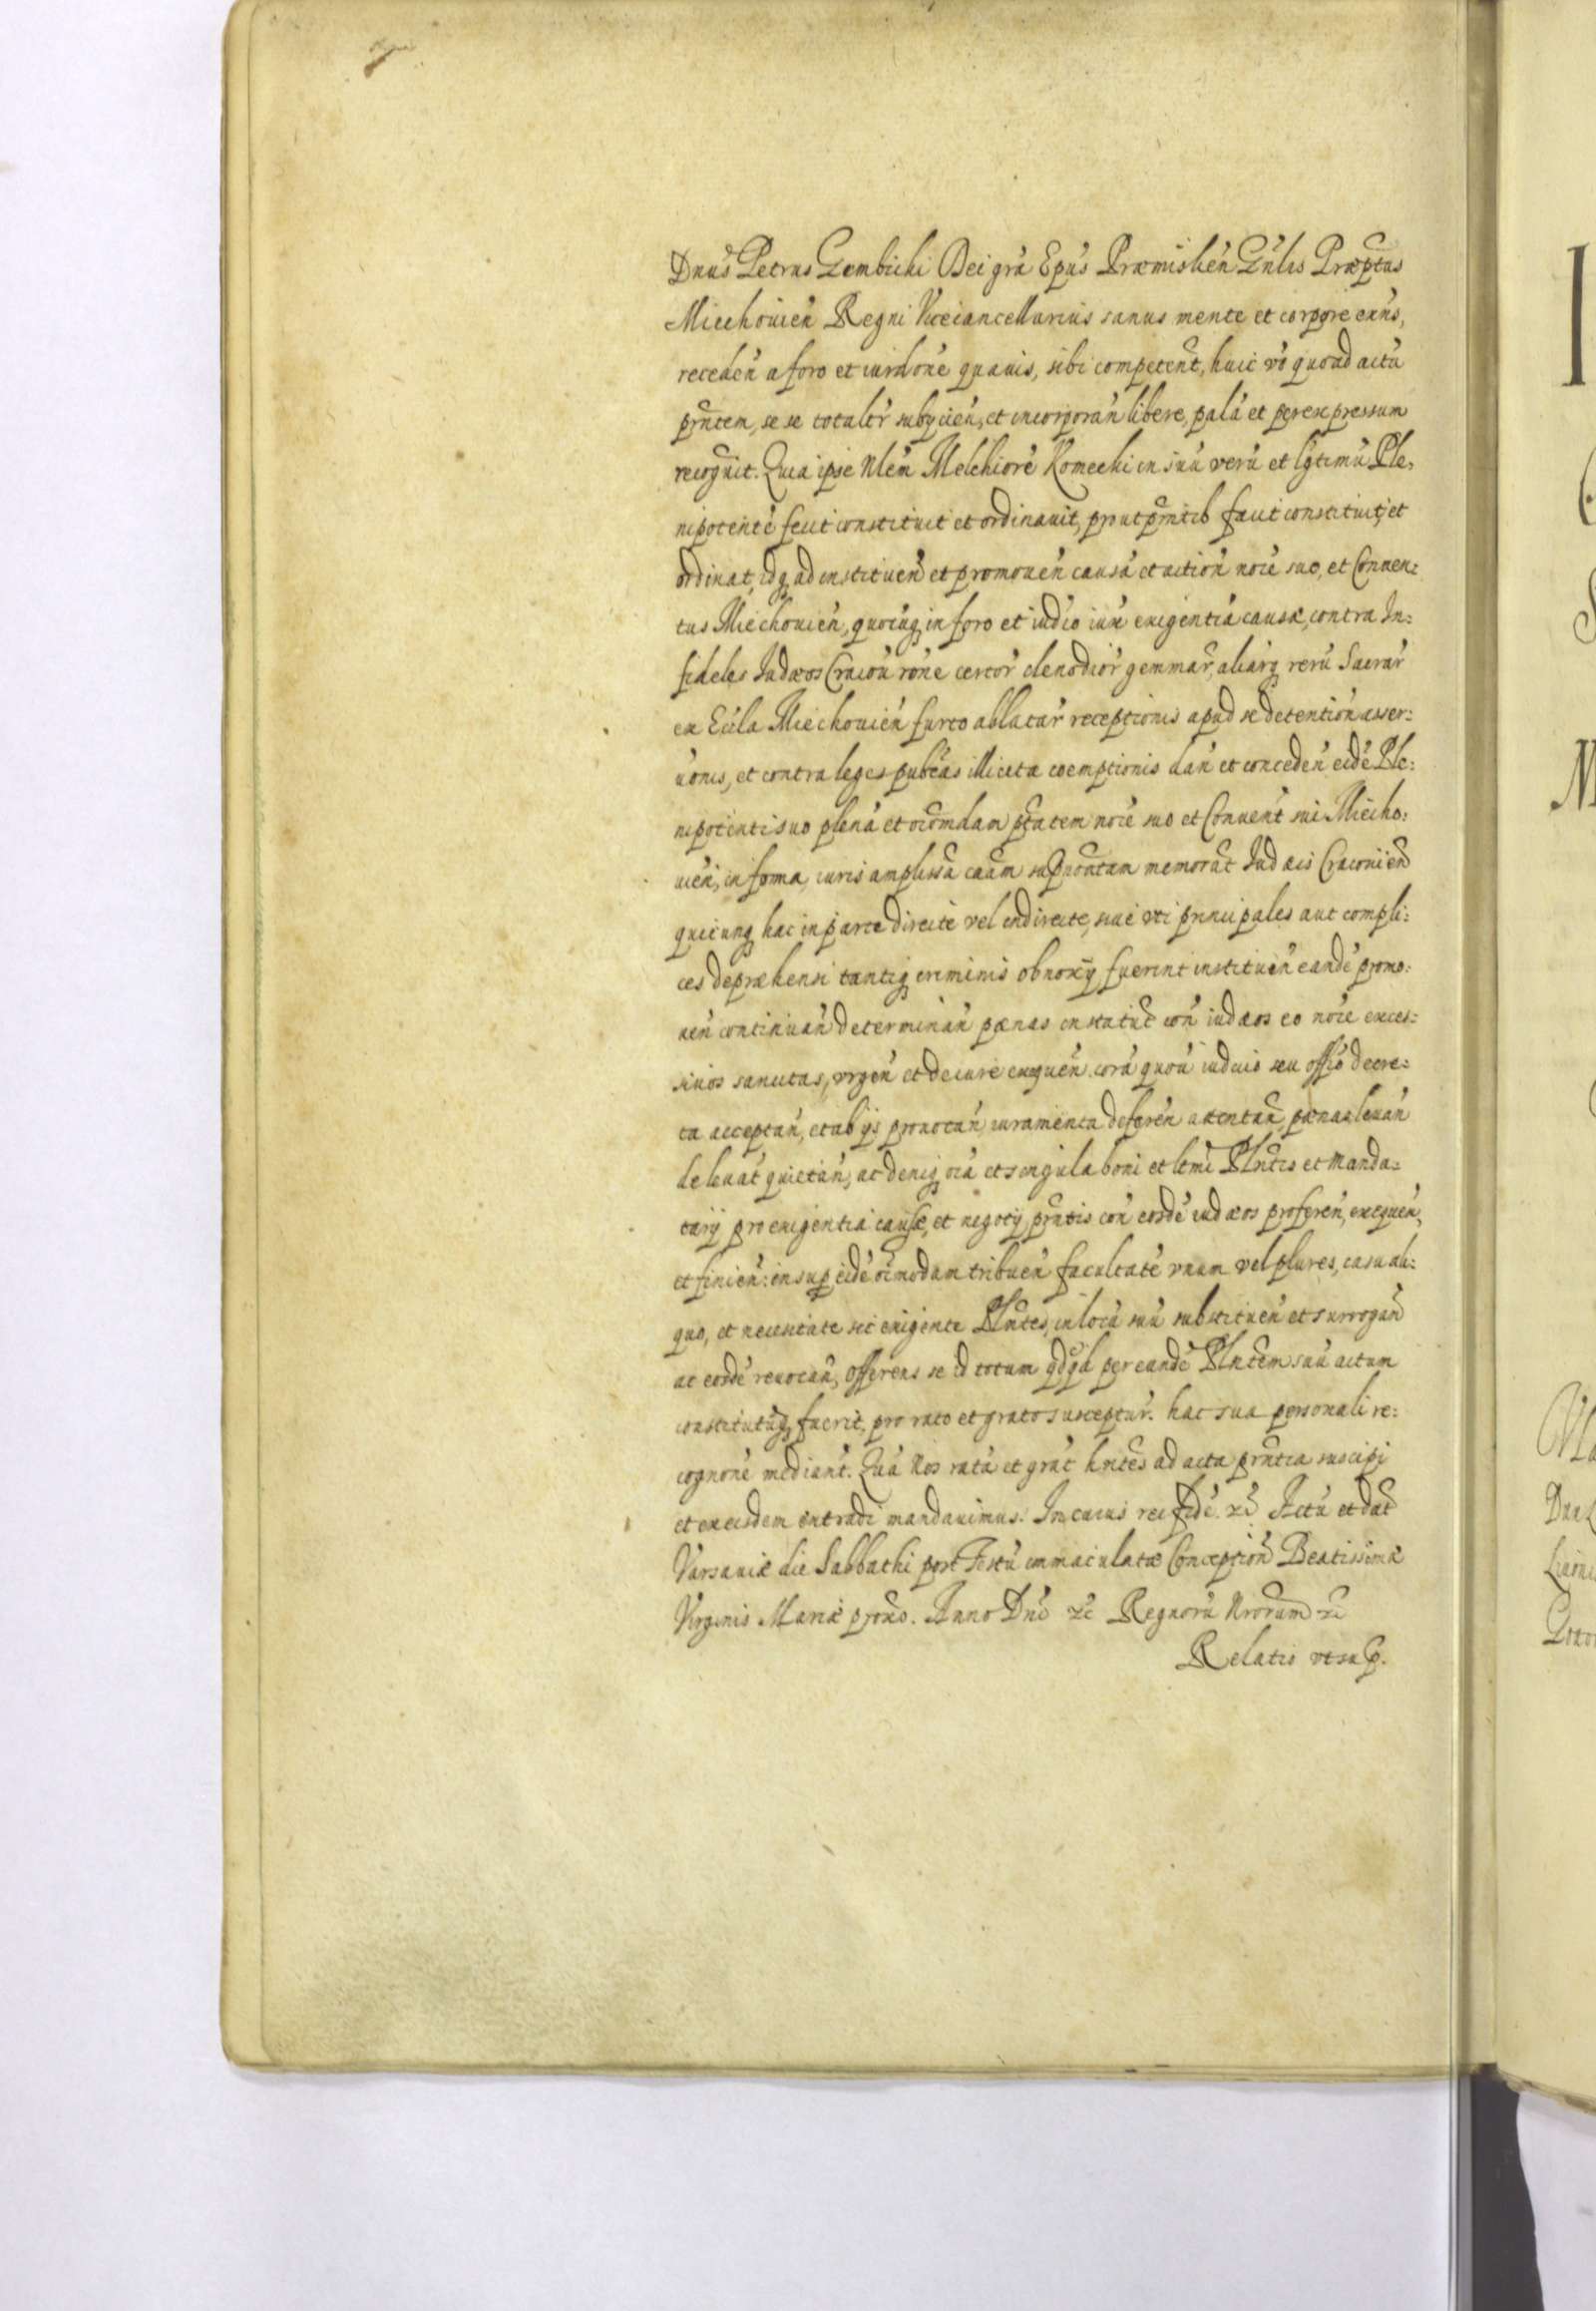 Dnus Petrus Gembicki Dei gra Epus Præmislien Gnlis Præptus
Miechouien Regni Vicecancellarius sanus mente et corpore exns,
receden a foro et iurisdone quauis, sibi competent, huic vo quoad actu
prntem, se se totaltr subijcien, et incorporan libere, pala et per expressum
recognit. Quia ipse Nlem Melchiore Komecki in suu veru et lgtimu Ple,
nipotente fecit constituit et ordinauit, prout prntib facit constituit et
ordinat, idq ad instituen et promouen causa et action noie suo, et Conuen:
tus Miechouien, quocuq in foro et iudio iux exigentia causæ, contra In:
fideles Judæos Cracou rone certor clenodior gemmar, aliarq reru Sacrar
ex Eccla Miechouien furto ablatar receptionis apud se detention asser:
uonis, et contra leges publcas illicitæ coemptionis dan et conceden eide Ple:
nipotenti suo plena et oiomdam ptatem noie suo et Conuent sui Miecho:
uien, in forma iuris amplissa caam supnotatam memorat Judæis Cracouien
quicunq hac in parte directe vel indirecte, siue vti principales aut compli:
ces deprehensi tantiq criminis obnoxij fuerint instituen eande promo:
uen continuan determinan pænas in statut con iudæos eo noie exces:
siuos sancitas, vrgen et de iure exequen cora quou iudicio seu offio decre:
ta acceptan, et ab ijs prouocan, iuramenta deferen attentan pænas leuan
de leuat quietan, ac deniq oia et singula boni et ltmi Plntis et manda:
tarij pro exigentia causæ, et negotij prntis con eosde iudæos proferen, exequen,
et finien: insup eide oimodam tribuen facultate vnum vel plures, casu ali:
quo, et necessitate sic exigente Plntes, in locu suu substituen et surrogan
ac eosde reuocan, Offerens se id totum qdqd per eande Plntem suu actum
constitutuq fuerit, pro rato et grato susceptur. hac sua personali re:
cognone mediant. Qua Nos rata et grat hntes ad acta prntia suscipi
et ex eisdem extradi mandauimus. In cuius rei fide. etc Actu et dat
Varsauiæ die Sabbathi post Festu immaculatæ Conception Beatissimæ
Virginis Mariæ proxo. Anno Dni etc Regnoru Nrorum etc
Relatio vt sup.